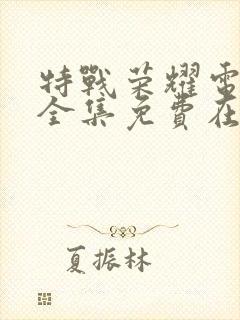 特戰荣耀電
全集免費在
夏振林